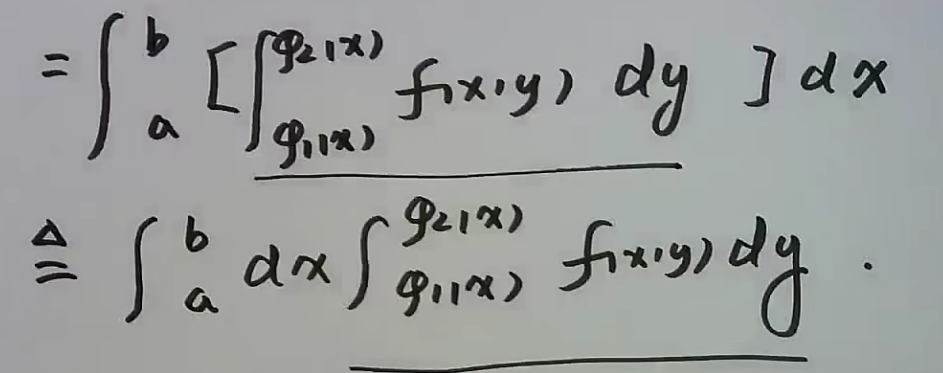 = ∫_a^b [∫_{φ₁(x)}^{φ₂(x)} f(x,y) dy ] dx
≜ ∫_a^b dx ∫_{φ₁(x)}^{φ₂(x)} f(x,y) dy .